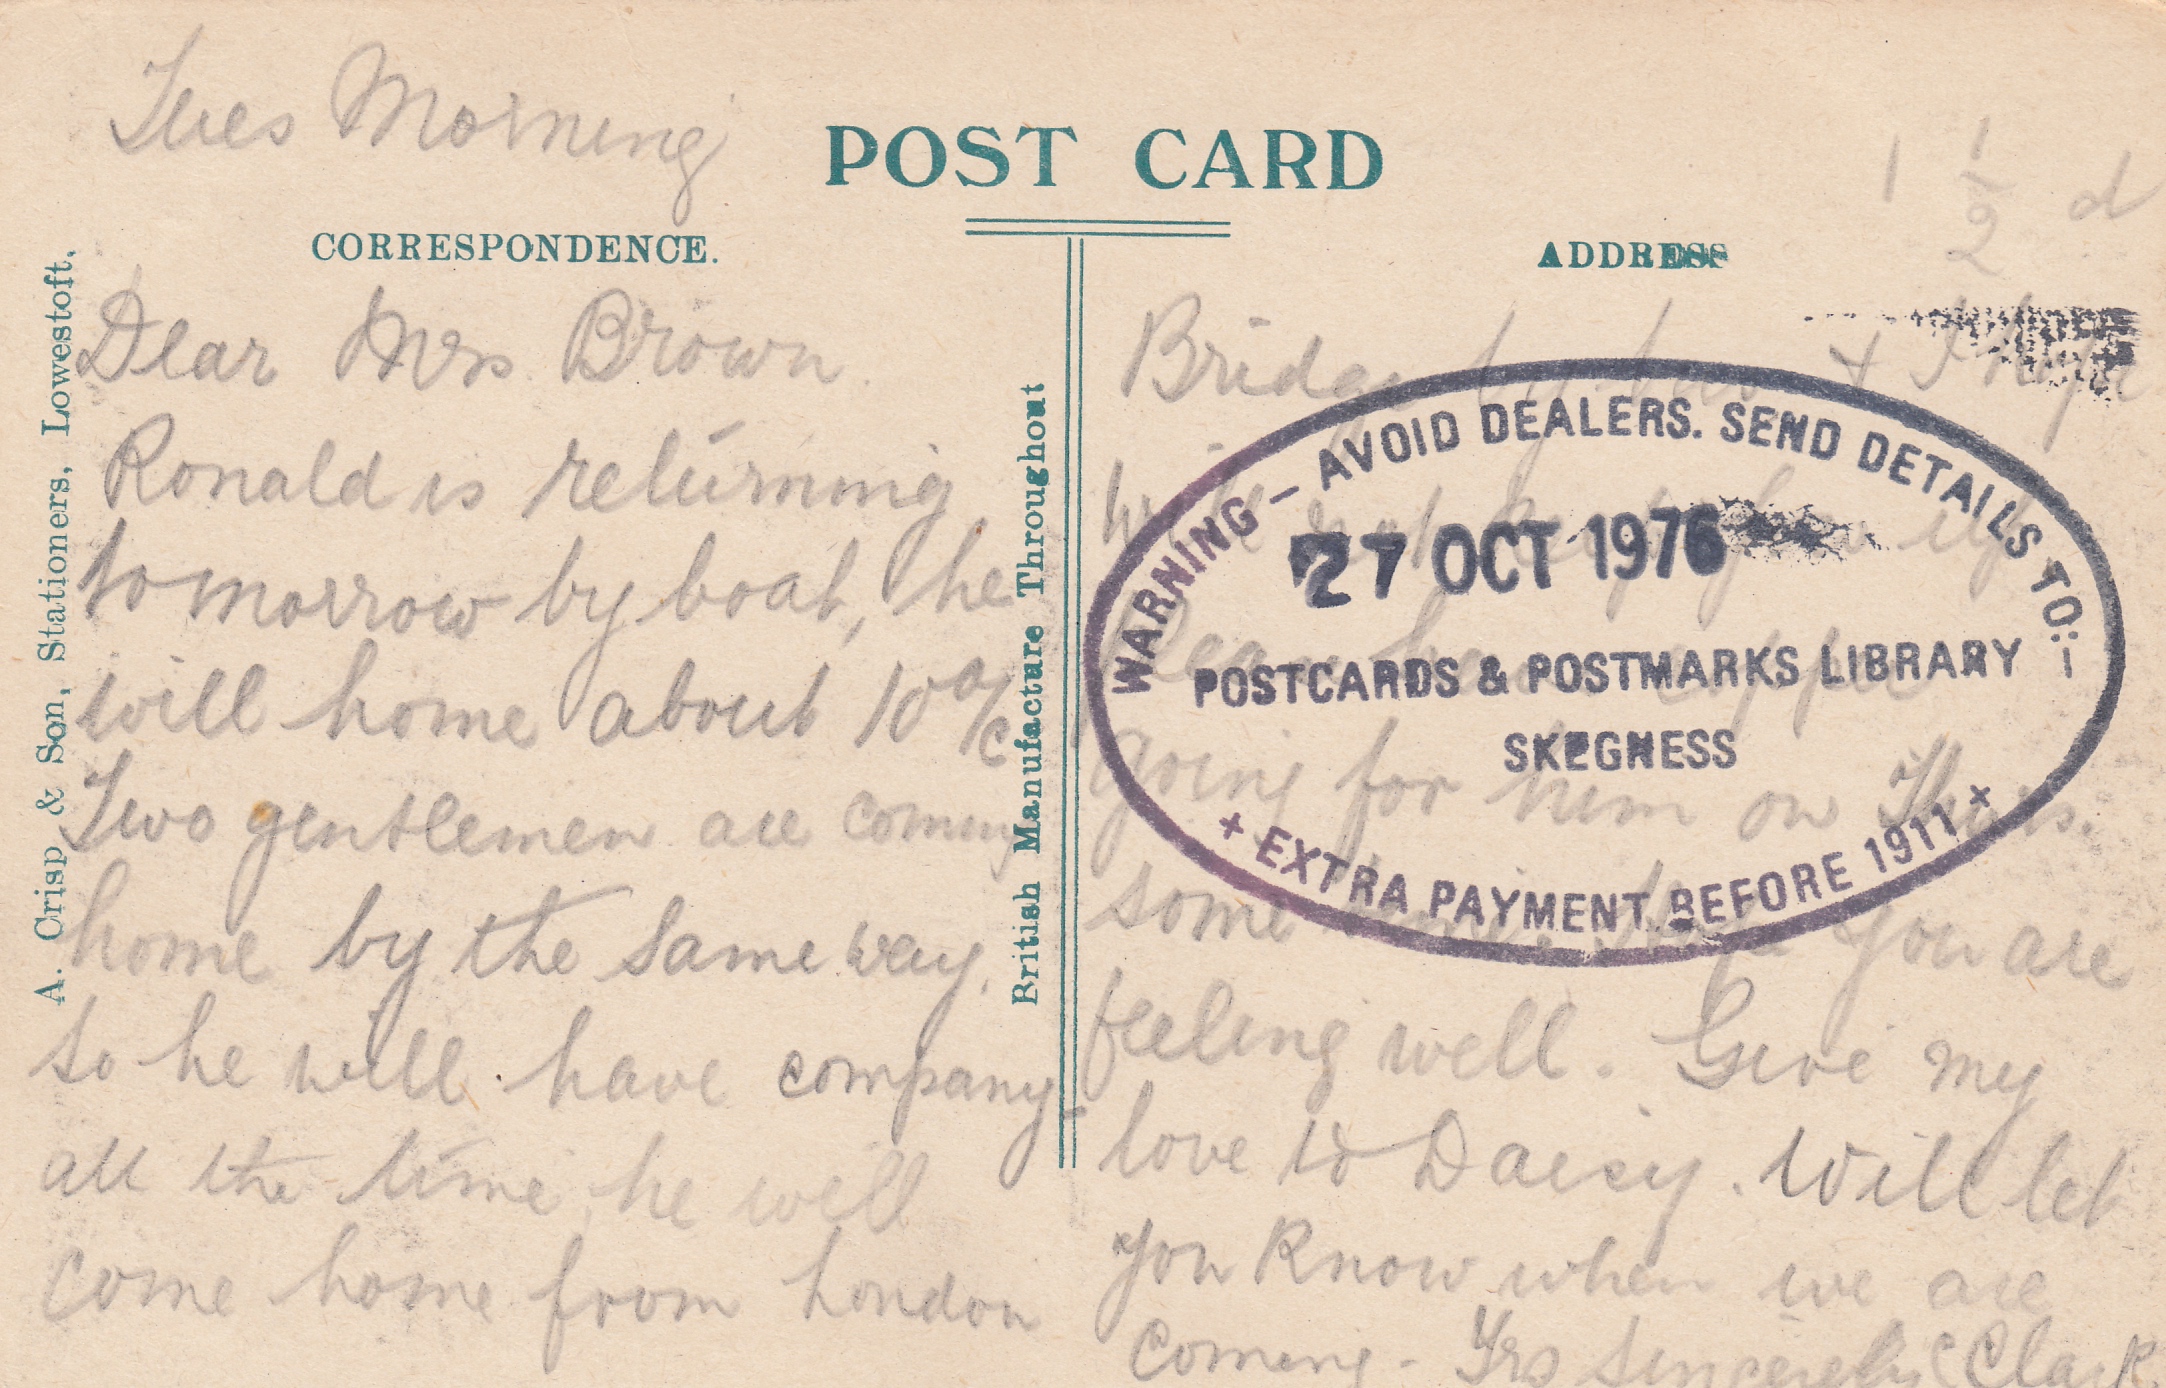 Tues Morning
POST CARD
1 1/2 d
CORRESPONDENCE.
ADDRESS
A. Crisp & Son, Stationers, Lowestoft.
British Manufacture Throughout
Dear Mrs Brown.
Ronald is returning
tomorrow by boat, he
will home about 10 o/c
Two gentlemen are coming
home by the same way.
so he will have company
all the time, he will
come home from London
Bridge by & I hope
will not
going for him on Thurs.
some you are
feeling well. Give my
love to Daisy. Will let
you know when we are
Coming - Yrs Sincerely C Clark
WARNING - AVOID DEALERS. SEND DETAILS TO:
27 OCT 1976
POSTCARDS & POSTMARKS LIBRARY
SKEGNESS
+ EXTRA PAYMENT BEFORE 1911 +